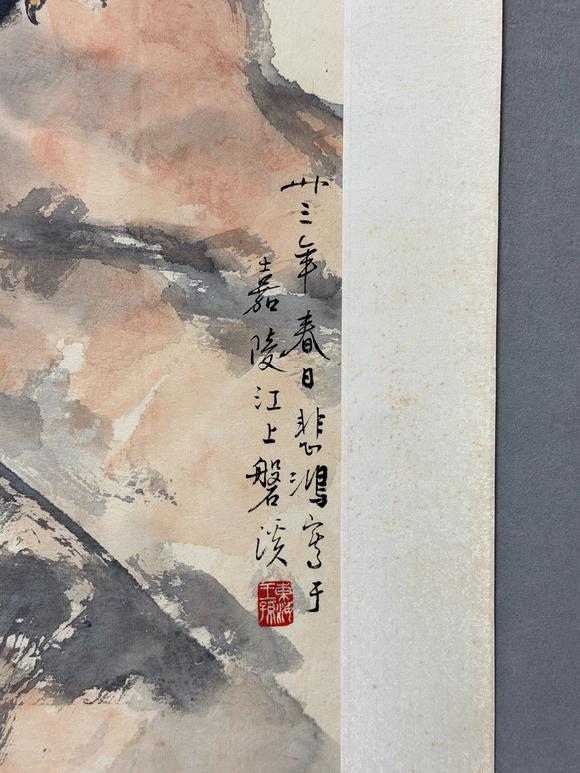 卅三年春日悲鴻寫于
嘉陵江上磐溪
東海王孫